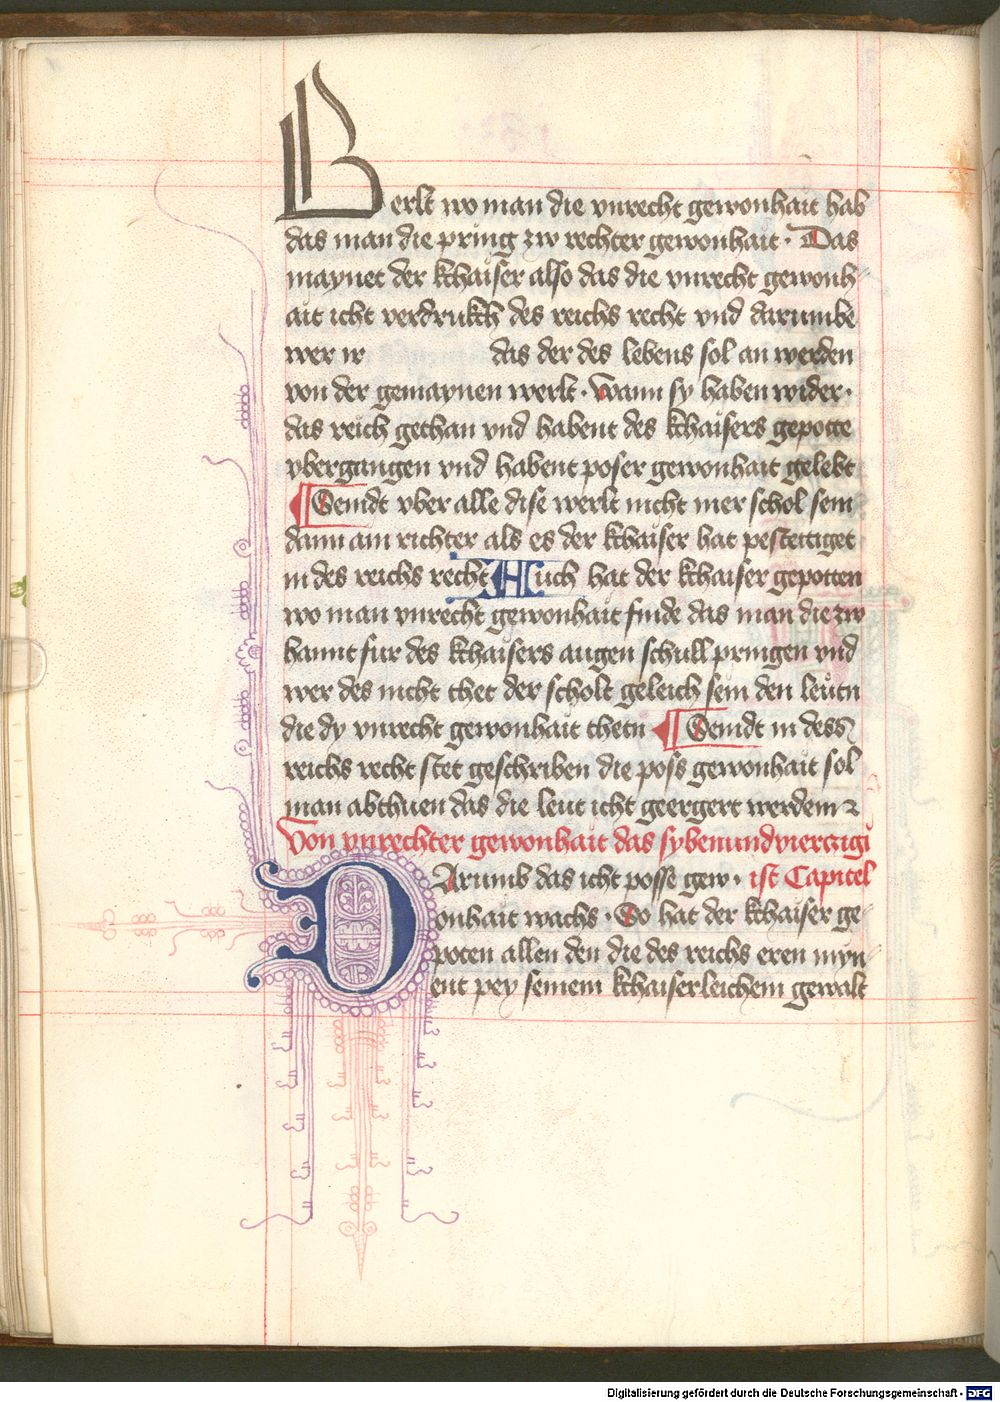 Werlt wo man die vnrecht gewonhait hab
das man die pring zw rechter gewonhait · Das
maynet der kchaiser also das die vnrecht gewonh
ait icht verdrukch des reichs recht vnd darumbe
wer ir das der des lebens sol an werden
von der gemaynen werlt · Wann sy haben wider ·
das reich gethan vnd habent des kchaisers gepotte
vbergangen vnd habent poser gewonhait gelebt
Seindt vber alle dise werlt nicht mer schol sein
dann ain richter als es der kchaiser hat pestettiget
in des reichs recht Auch hat der kchaiser gepotten
wo man vnrecht gewonhait finde das man die zw
hannt fur des kchaisers augen schull pringen vnd
wer des nicht thet der scholt geleich sein den leutn
die dy vnrecht gewonhait thetn Seindt in dess
reichs recht stet geschriben die poss gewonhait sol
man abthuen das die leut icht geergert werdem
Von vnrechter gewonhait das sybenundvierczigi
DArumb das icht posse gew · ist Capitel
onhait wachs · So hat der kchaiser ge
poten allen den die des reichs eren myn
ent pey seinem kchaiserleichem gewalt
Digitalisierung gefördert durch die Deutsche Forschungsgemeinschaft - DFG